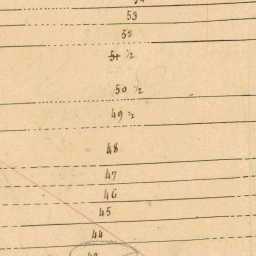 53
52
51 ½
50 ½
49 ½
48
47
46
45
44